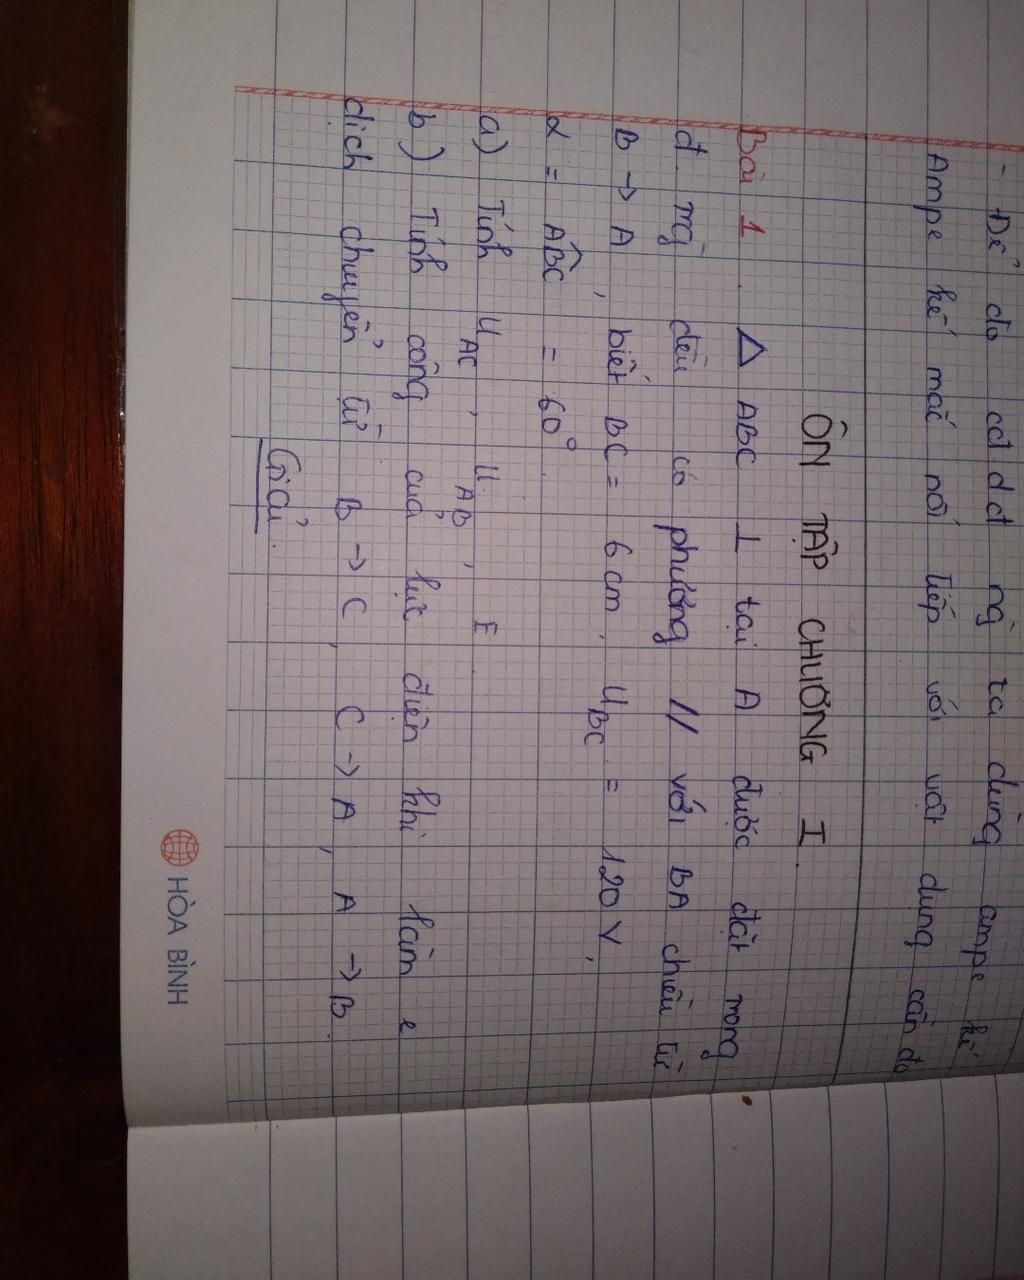 - Để do cđdđ ng` ta dùng ampe kế
Ampe kế mắc nối tiếp với vật dung cần đo
ÔN TẬP CHƯƠNG I.
Bài 1. △ ABC ⊥ tại A được đặt trong
đ. trg` đều có phương // với BA chiều từ
B → A, biết BC = 6 cm, U_BC = 120 V,
α = ABC^ = 60°.
a) Tính U_AC, U_AB, E.
b) Tính công của lực điện khi làm e
dịch chuyển từ B → C, C → A, A → B.
Giải.
HÒA BÌNH